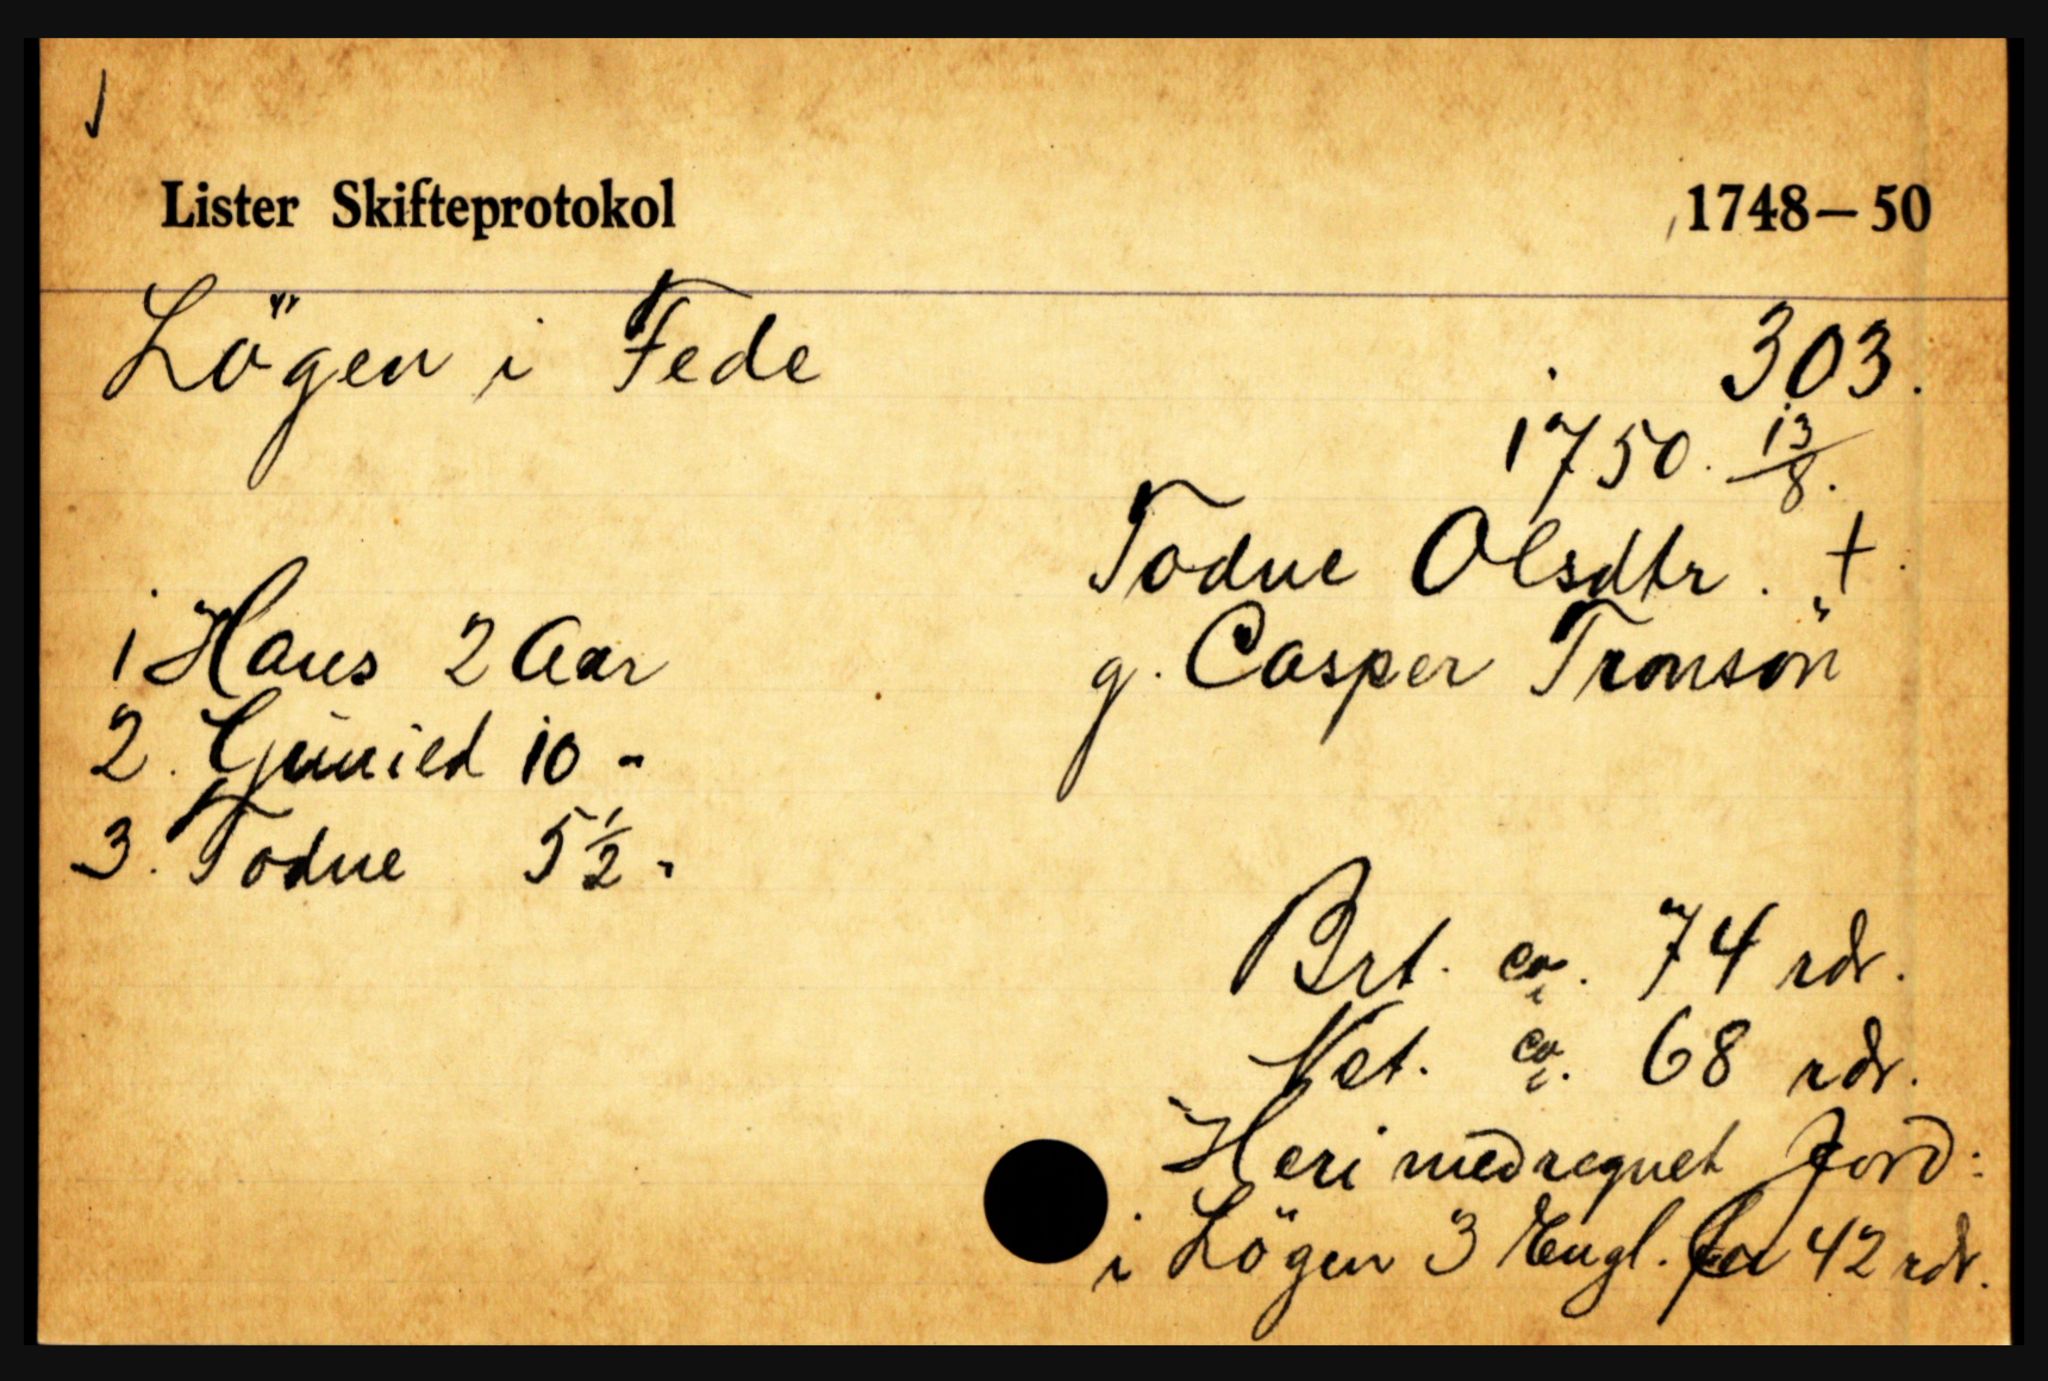 Lister Skifteprotokol 1748-50
Lögen i Fede 303.
1750. 13/8.
Todne Olsdtr. +
g. Casper Tronsön
1 Hans 2 Aar
2. Gunild 10 "
3. Todne 5 1/2 "
Brt. ca. 74 rdr.
Net. ca. 68 rdr.
Heri medregnet Jord:
i Lögen 3 Engl. for 42 rdr.